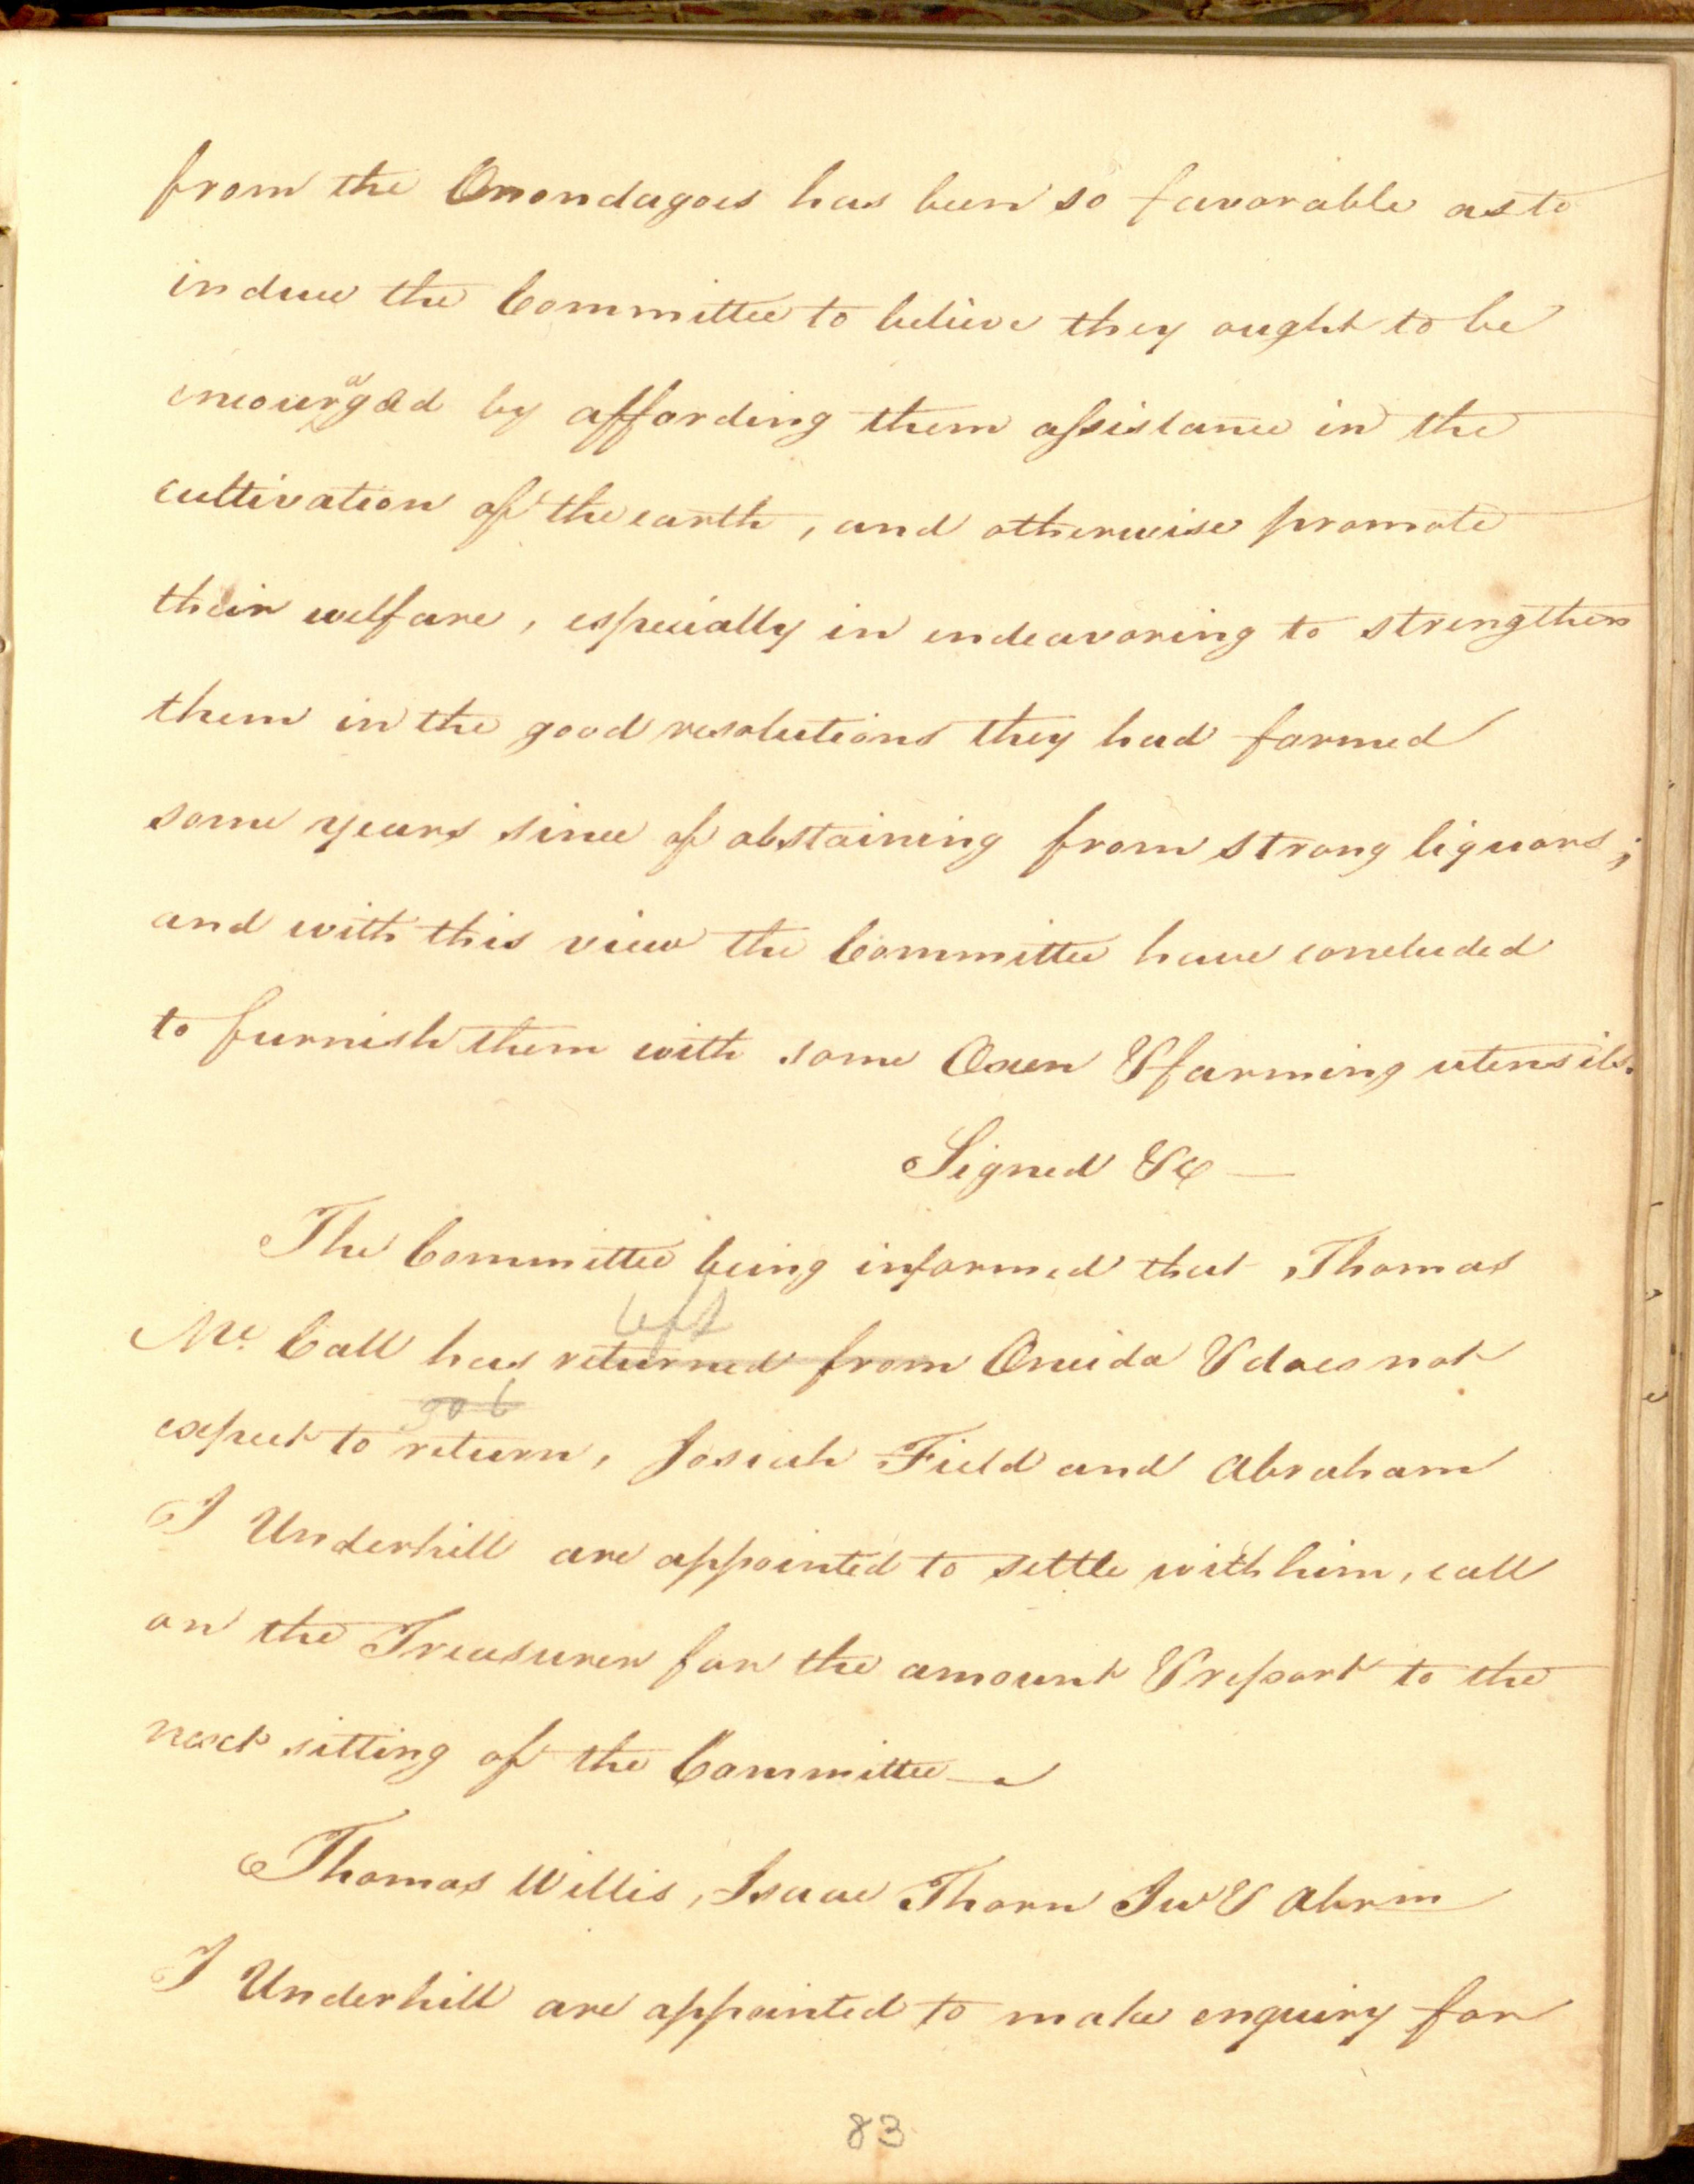 from the Onondagoes has been so favorable as to
induce the Committee to believe they ought to be
encouraged by affording them assistance in the
cultivation of the earth, and otherwise promote
their welfare, especially in endeavoring to strengthen
them in the good resolutions they had formed
some years since of abstaining from strong liquors;
and with this view the Committee have concluded
to furnish them with some Oxen & farming utensils.
Signed &c —
The Committee being informed that Thomas
left
Mc. Call has returned from Oneida & does not
expect to return, Josiah Field and Abraham
I Underhill are appointed to settle with him, call
on the Treasurer for the amount & report to the
next sitting of the Committee —
Thomas Willis, Isaac Thorn Jur & Abrm
I Underhill are appointed to make enquiry for
83